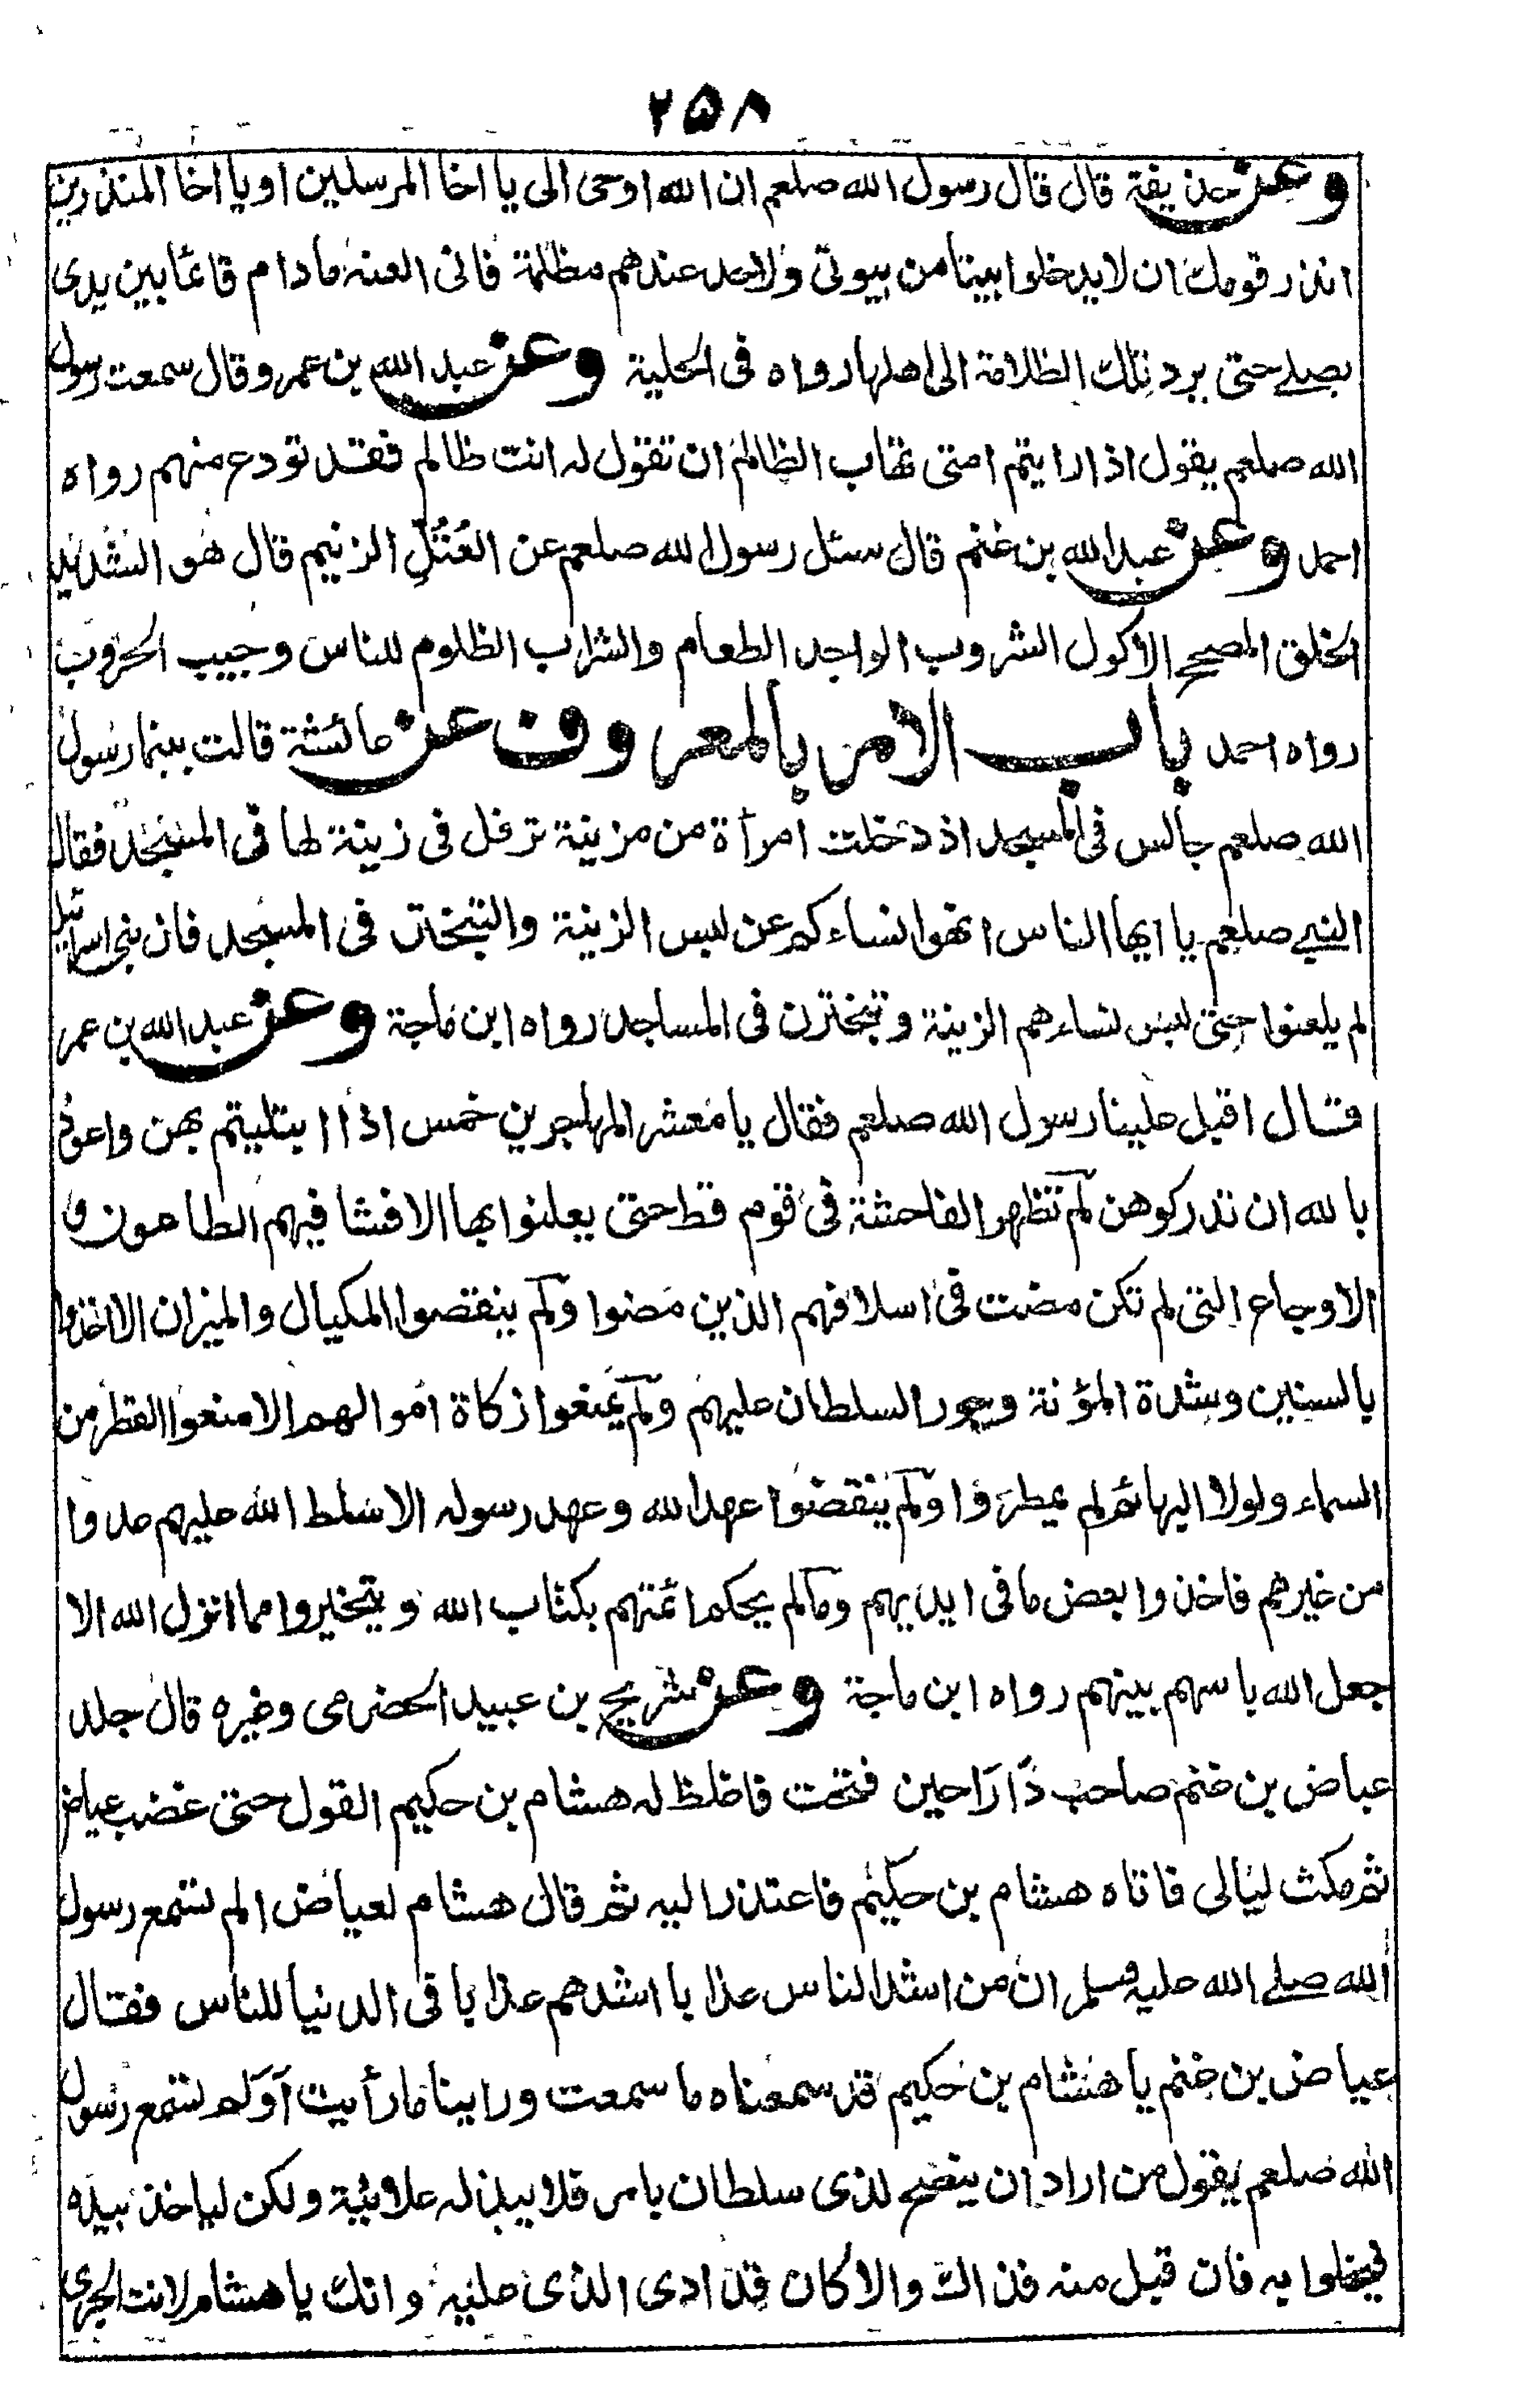 ۲۵۸
وعن حذيفة قال قال رسول الله صلعم ان الله اوحى الى يا اخا المرسلين او يا اخا المنذرين
انذر قومك ان لا يدخلوا بيتا من بيوتى ولاحد عندهم مظلمة فانى العنه ما دام قائما بين يدى
يصلے حتى يرد تلك الظلامة الى اهلها رواه فى الحلية وعن عبد الله بن عمرو قال سمعت رسول
الله صلعم يقول اذا رايتم امتى تهاب الظالم ان تقول له انت ظالم فقد تودع منهم رواه
احمد وعن عبد الله بن غنم قال سئل رسول الله صلعم عن العُتُلِّ الزنيم قال هو الشديد
الخلق المصحح الاكول الشروب الواجد الطعام والشراب الظلوم للناس وحبيب
رواه احمد باب الامر بالمعروف عن عائشة قالت بينما رسول
الله صلعم جالس فى المسجد اذ دخلت امرأة من مزينة ترفل فى زينة لها فى المسجد فقال
النبے صلعم يا ايها الناس انهوا نساءكم عن لبس الزينة والتبختر فى المسجد فان بنى اسرائيل
لم يلعنوا حتى لبس نساءهم الزينة وتبخترن فى المساجد رواه ابن ماجة وعن عبد الله بن عمر
قال اقبل علينا رسول الله صلعم فقال يا معشر المهاجرين خمس اذا ابتليتم بهن واعوذ
بالله ان تدركوهن لم تظهر الفاحشة فى قوم قط حتى يعلنوا بها الا فشا فيهم الطاعون و
الاوجاع التى لم تكن مضت فى اسلافهم الذين مضوا ولم ينقصوا المكيال والميزان الا اخذوا
بالسنين وشدة المؤنة وجور السلطان عليهم ولم يمنعوا زكاة اموالهم الا منعوا القطر من
السماء ولولا البهائم لم يمطروا ولم ينقضوا عهد الله وعهد رسوله الا سلط الله عليهم عدوا
من غيرهم فاخذوا بعض ما فى ايديهم وما لم يحكم ائمتهم بكتاب الله ويتخيروا مما انزل الله الا
جعل الله باسهم بينهم رواه ابن ماجة وعن شريح بن عبيد الحضرمى وغيره قال جلد
عياض بن غنم صاحب دَارَا حين فتحت فاغلظ له هشام بن حكيم القول حتى غضب عياض
ثم مكث ليالى فاتاه هشام بن حكيم فاعتذر اليه ثم قال هشام لعياض الم تسمع رسول
الله صلے الله عليه وسلم ان من اشد الناس عذابا اشدهم عذابا فى الدنيا للناس فقال
عياض بن غنم يا هشام بن حكيم قد سمعناه ما سمعت وراينا ما رأيت أَوَلم تسمع رسول
الله صلعم يقول من اراد ان ينصح لذى سلطان بامر فلا يبد له علانية ولكن لياخذ بيده
فيخلوا به فان قبل منه فذاك والا كان قد ادى الذى عليه وانك يا هشام لانت الجرى